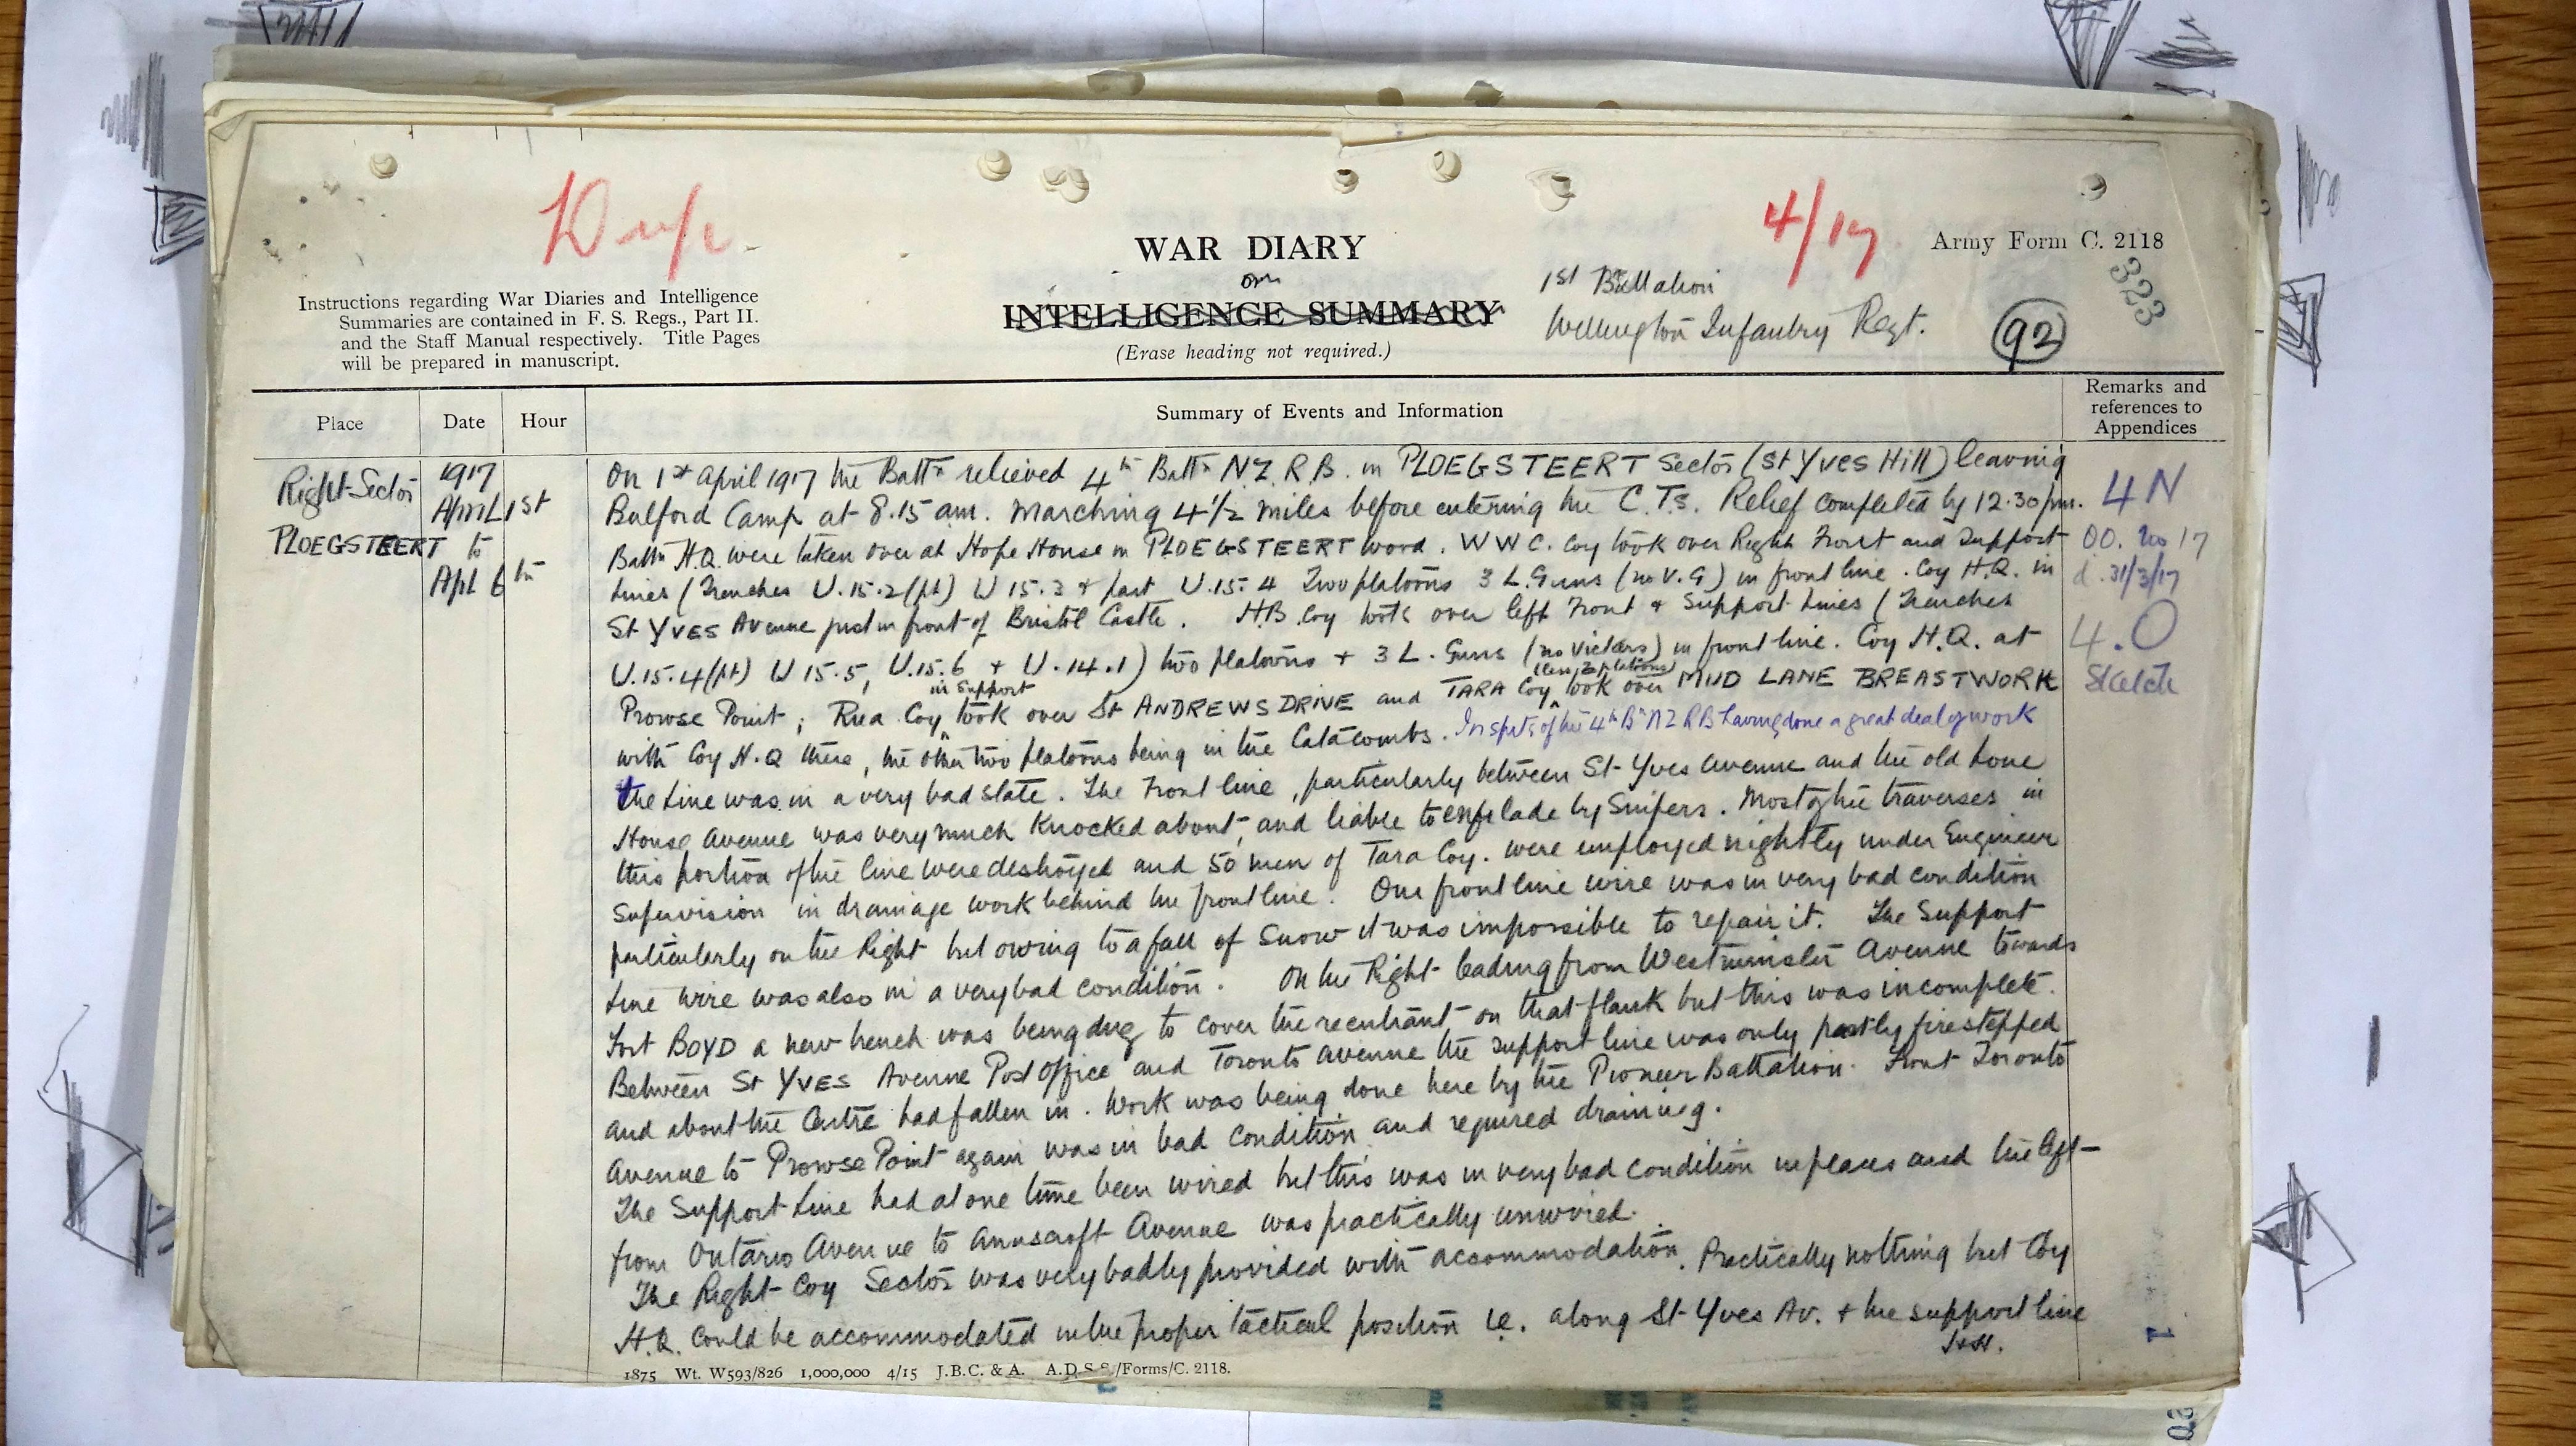 Dup.
4/17
WAR DIARY
or
INTELLIGENCE SUMMARY
(Erase heading not required.)
Instructions regarding War Diaries and Intelligence
Summaries are contained in F. S. Regs., Part II.
and the Staff Manual respectively. Title Pages
will be prepared in manuscript.
1st Battalion
Wellington Infantry Regt.
Army Form C. 2118
323
92
Place
Date
Hour
Summary of Events and Information
Remarks and
references to
Appendices
Right Sector
PLOEGSTEERT
1917
April 1st
to
Apl 6th
On 1st April 1917 the Battn relieved 4th Battn N Z. R. B. in PLOEGSTEERT Sector (St Yves Hill) leaving
Bulford Camp at 8.15 am. Marching 4 1/2 miles before entering the C.T.s. Relief completed by 12.30 pm.
Battn H.Q. were taken over at Hope House in PLOEGSTEERT wood. W W C. Coy took over Right Front and Support
Lines (Trenches U.15.2(pt) U 15.3 + part U.15.4 Two platoons 3 L. Guns (no V.G) in front line. Coy H.Q. in
St YVES Avenue just in front of Bristol Castle. H.B. Coy took over left Front + Support Lines (Trenches
U.15.4(pt) U 15.5, U.15.6 + U.14.1) two platoons + 3 L. Guns (no Vickers) in front line. Coy H.Q. at
Prowse Point; Rua. Coy in support took over St ANDREWS DRIVE and TARA Coy (less 2 platoons) took over MUD LANE BREASTWORK
with Coy H.Q there, the other two platoons being in the Catacombs. In spite of the 4th Bn N Z R B having done a great deal of work
the Line was in a very bad state. The Front line, particularly between St Yves Avenue and the old Lone
House Avenue was very much knocked about, and liable to enfilade by Snipers. Most of the traverses in
this portion of the line were destroyed and 50 men of Tara Coy. were employed nightly under Engineer
Supervision in drainage work behind the front line. Our front line wire was in very bad condition
particularly on the Right but owing to a fall of snow it was impossible to repair it. The Support
Line wire was also in a very bad condition. On the Right leading from Westminster Avenue towards
Fort BOYD a new trench was being dug to cover the reentrant on that flank but this was incomplete.
Between St YVES Avenue Post Office and Toronto Avenue the support line was only partly firestepped
and about the Centre had fallen in. Work was being done here by the Pioneer Battalion. Front Toronto
Avenue to Prowse Point again was in bad condition and required draining.
The Support Line had at one time been wired but this was in very bad condition in places and the left
from Ontario Avenue to Annscroft Avenue was practically unwired.
The Right Coy Sector was very badly provided with accommodation. Practically nothing but Coy
H.Q. could be accommodated in the proper tactical position i.e. along St Yves Av. + the support line
4 N
OO. No 17
d. 31/3/17
4.O
Sketch
1
1875 Wt. W593/826 1,000,000 4/15 J.B.C. & A. A.D.S.S./Forms/C. 2118.